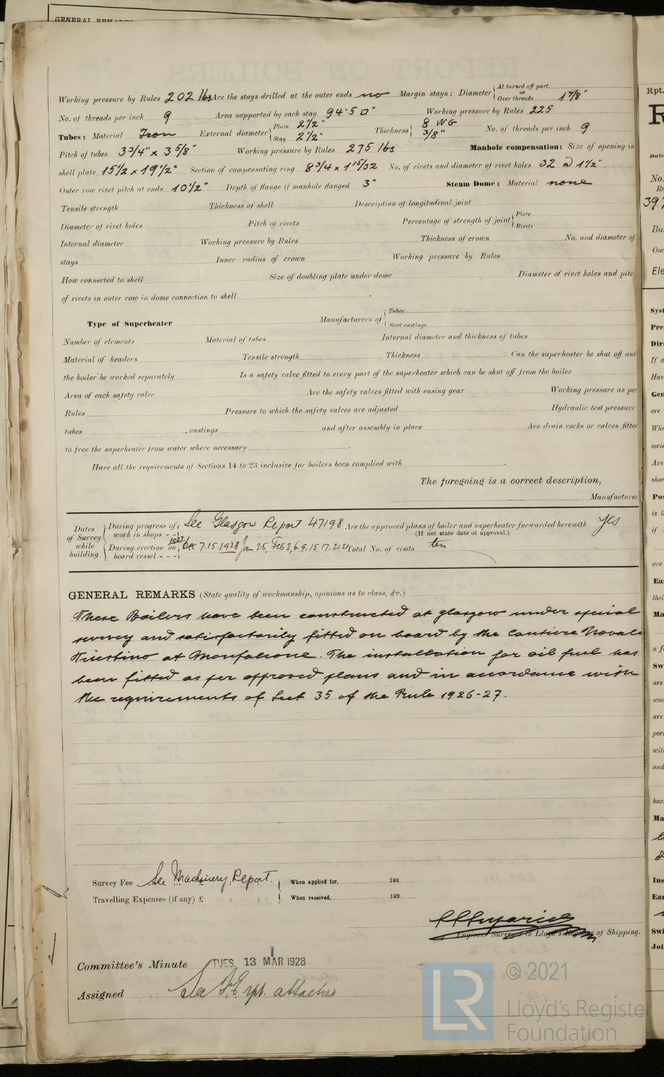 GENERAL REMARKS
Working pressure by Rules 202 lbs Are the stays drilled at the outer ends no Margin stays: Diameter { At turned off part, or Over threads 1 7/8"
No. of threads per inch 9 Area supported by each stay 94·5 □" Working pressure by Rules 225
Tubes: Material Iron External diameter { Plain 2 1/2" Stay 2 1/2" Thickness { 8 WG 3/8" No. of threads per inch 9
Pitch of tubes 3 3/4" x 3 5/8" Working pressure by Rules 275 lbs Manhole compensation: Size of opening in
shell plate 15 1/2 x 19 1/2" Section of compensating ring 8 3/4 x 1 15/32 No. of rivets and diameter of rivet holes 32 @ 1 1/2"
Outer row rivet pitch at ends 10 1/2" Depth of flange if manhole flanged 3" Steam Dome: Material none
Tensile strength Thickness of shell Description of longitudinal joint
Diameter of rivet holes Pitch of rivets Percentage of strength of joint { Plate Rivets
Internal diameter Working pressure by Rules Thickness of crown No. and diameter of
stays Inner radius of crown Working pressure by Rules
How connected to shell Size of doubling plate under dome Diameter of rivet holes and pitch
of rivets in outer row in dome connection to shell
Type of Superheater Manufacturers of { Tubes Steel castings
Number of elements Material of tubes Internal diameter and thickness of tubes
Material of headers Tensile strength Thickness Can the superheater be shut off and
the boiler be worked separately Is a safety valve fitted to every part of the superheater which can be shut off from the boiler
Area of each safety valve Are the safety valves fitted with easing gear Working pressure as per
Rules Pressure to which the safety valves are adjusted Hydraulic test pressure
tubes , castings and after assembly in place Are drain cocks or valves fitted
to free the superheater from water where necessary
Have all the requirements of Sections 14 to 23 inclusive for boilers been complied with
The foregoing is a correct description,
Manufacturer
Dates of Survey while building { During progress of work in shops - - See Glasgow Report 47198 Are the approved plans of boiler and superheater forwarded herewith yes
(If not state date of approval.)
During erection on board vessel - - - 1927 Dec 7.15.1928 Jan 25, Feb 2,6.9.15.17.21 Total No. of visits ten
GENERAL REMARKS (State quality of workmanship, opinions as to class, &c.)
These Boilers have been constructed at glasgow under special
survey and satisfactorily fitted on board by the Cantiere Navale
Triestino at Monfalcone. The installation for oil fuel has
been fitted as per approved plans and in accordance with
the requirements of Sect 35 of the Rule 1926-27.
Survey Fee See Machinery Report. When applied for, 192
Travelling Expenses (if any) £ : : When received, 192
Engineer Surveyor to Lloyd's Register of Shipping.
Committee's Minute TUES. 13 MAR 1928
Assigned See F.E. rpt. attached
© 2021
LR
Lloyd's Register
Foundation